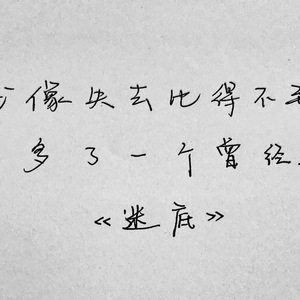 像失去比得不
多了一个曾经
《迷底》